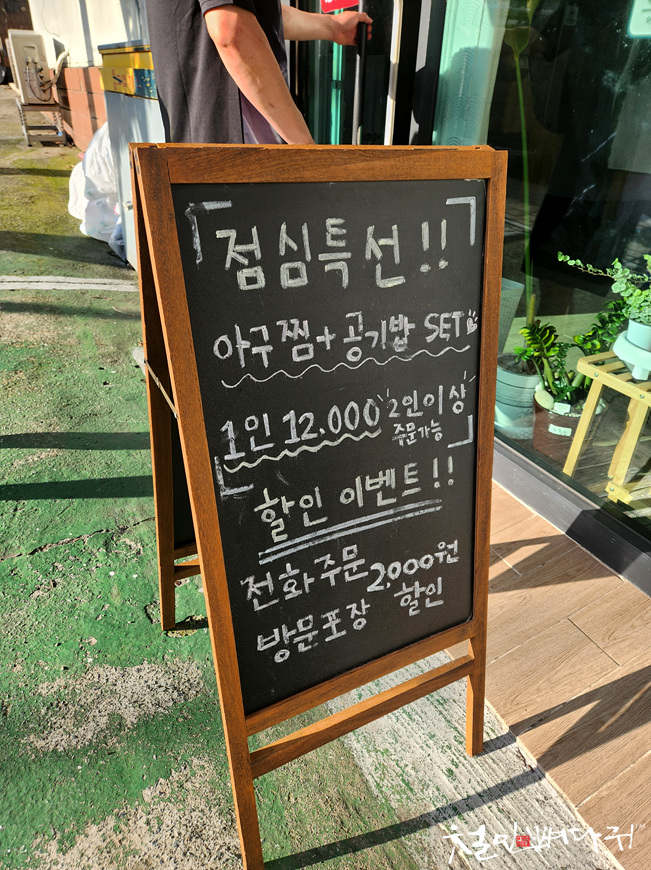 점심특선!!
아구찜+공기밥 SET
1인 12.000 2인이상
주문가능
할인 이벤트!!
전화주문 2.000원
방문포장 할인